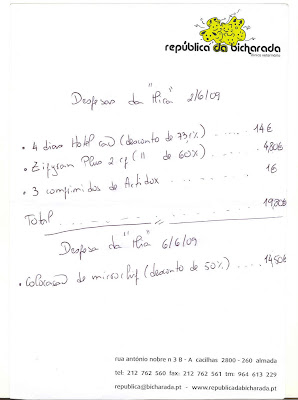 república da bicharada
clínica veterinária
Despesas da "Mia" 2/6/09
• 4 dias Hotel cão (desconto de 73,1%) ..... 14€
• Zipyram Plus 2 cp (" de 60%) ..... 4,80€
• 3 comprimidos de Artidox ..... 1€
Total ..... 19,80€
Despesa da "Mia" 6/6/09
• Colocação de microchip (desconto de 50%) .... 14,50€
rua antónio nobre n 3 B - A cacilhas 2800 - 260 almada
tel: 212 762 560 fax: 212 762 561 tm: 964 613 229
republica@bicharada.pt - www.republicadabicharada.pt